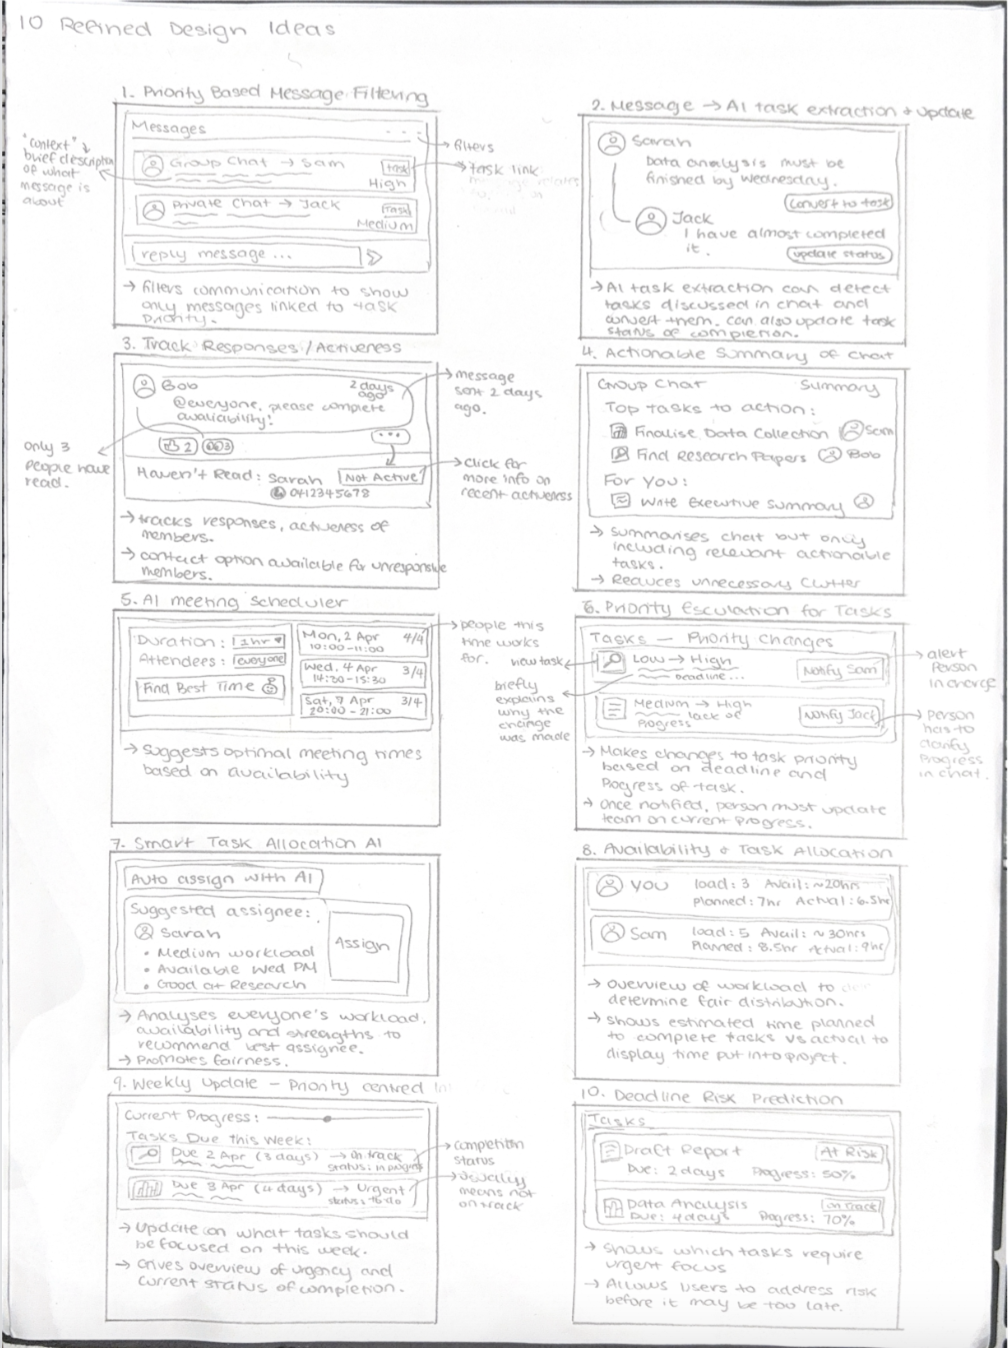 10 Refined Design Ideas
1. Priority Based Message Filtering
Messages
...
Group Chat → Sam
Task
High
Private Chat → Jack
Task
Medium
reply message ...
"context"
brief description
of what
message is
about
filters
task link
→ filters communication to show
only messages linked to task
priority.
2. Message → AI task extraction + update
Sarah
Data analysis must be
finished by Wednesday.
Convert to task
Jack
I have almost completed
it.
update status
→ AI task extraction can detect
tasks discussed in chat and
convert them. can also update task
status of completion.
3. Track Responses/Activeness
Bob
2 days
ago
@everyone, please complete
avaliability!
2
3
...
Haven't Read: Sarah
Not Active
0412345678
message
sent 2 days
ago.
only 3
People have
read.
click for
more info on
recent activeness
→ tracks responses, activeness of
members.
→ contact option available for unresponsive
members.
4. Actionable Summary of Chat
Group Chat
Summary
Top tasks to action:
Finalise Data Collection
Sam
Find Research Papers
Bob
For you:
Write Executive Summary
→ Summarises chat but only
including relevant actionable
tasks.
→ Reduces unnecessary Clutter
5. AI meeting scheduler
Duration: 1hr
Attendees: everyone
Find Best Time
Mon, 2 Apr 4/4
10:00-11:00
Wed, 4 Apr 3/4
14:30-15:30
Sat, 7 Apr 3/4
20:00-21:00
people this
time works
for.
→ Suggests optimal meeting times
based on availability
6. Priority Esculation for Tasks
Tasks — Priority Changes
Low → High
Deadline...
Notify Sam
Medium → High
lack of
Progress
Notify Jack
view task
briefly
explains
why the
change
was made
alert
Person
in charge
person
has to
clarify
Progress
in chat.
→ Makes changes to task priority
based on deadline and
Progress of task.
→ Once notified, person must update
team on current progress.
7. Smart Task Allocation AI
Auto assign with AI
Suggested assignee:
Sarah
• Medium workload
• Available Wed PM
• Good at Research
Assign
→ Analyses everyone's workload,
availability and strengths to
recommend best assignee.
→ Promotes fairness.
8. Availability & Task Allocation
You load: 3 Avail: ~20hrs
planned: 7hr Actual: 6.5hr
Sam load: 5 Avail: ~30hrs
Planned: 8.5hr Actual: 9hr
→ overview of workload to
determine fair distribution.
→ shows estimated time planned
to complete tasks vs actual to
display time put into project.
9. Weekly Update — Priority centred
Current Progress:
Tasks Due this Week:
Due 2 Apr (3 days) → on track
status: in progress
Due 3 Apr (4 days) → Urgent
status: to do
completion
status
usually
means not
on track
→ Update on what tasks should
be focused on this week.
→ Gives overview of urgency and
current status of completion.
10. Deadline Risk Prediction
Tasks
Draft Report
At Risk
Due: 2 days Progress: 50%
Data Analysis
on track
Due: 4 days Progress: 70%
→ Shows which tasks require
urgent focus
→ Allows users to address risk
before it may be too late.